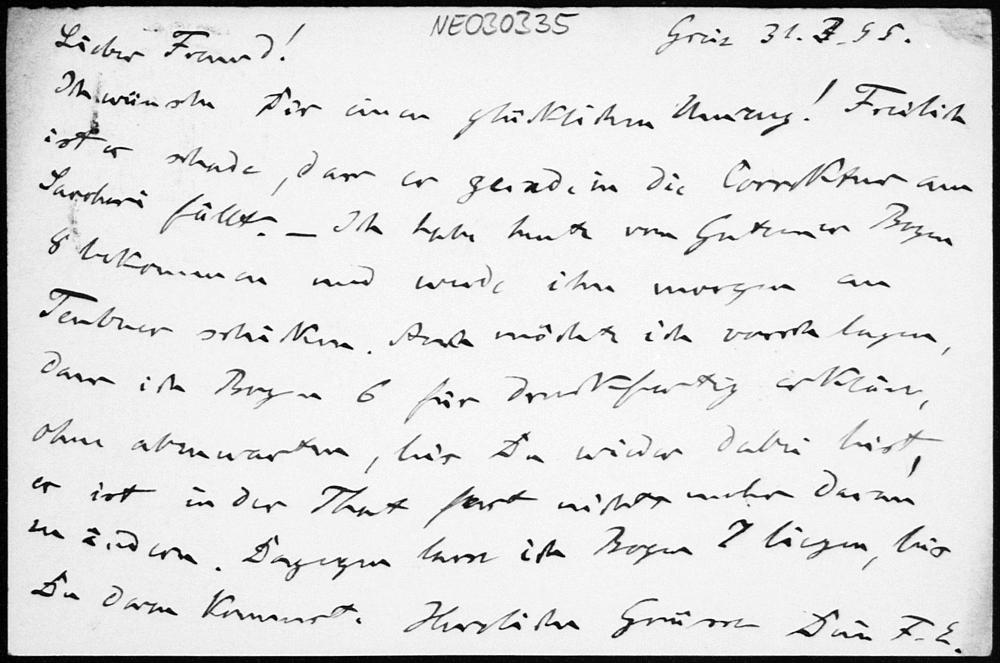 NEO30335
Graz 31. Z. 95.
Lieber Freund!
Ich wünsche Dir einen glücklichen Umzug! Freilich
ist es schade, dass er gerade in die Correktur am
fällt. — Ich habe heute vom Bogen
8 bekommen und werde ihn morgen an
Teubner schicken. Auch möchte ich vorschlagen,
dass ich Bogen 6 für druckfertig erkläre,
ohne abzuwarten, bis Du wieder dabei bist,
es ist in der That fast nichts mehr daran
zu ändern. Dagegen lasse ich Bogen 7 liegen, bis
Du daran kommst. Herzliche Grüsse Dein F. E.